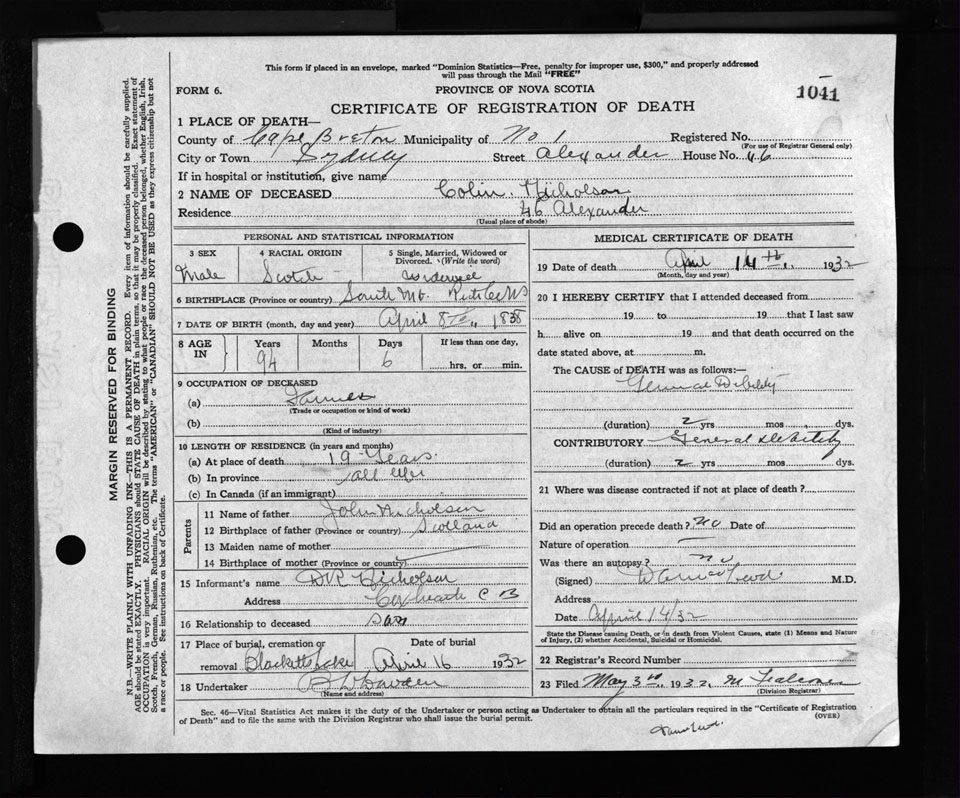 This form if placed in an envelope, marked "Dominion Statistics—Free, penalty for improper use, $300," and properly addressed
will pass through the Mail "FREE"
FORM 6.
PROVINCE OF NOVA SCOTIA
1041
CERTIFICATE OF REGISTRATION OF DEATH
1 PLACE OF DEATH—
County of Cape Breton Municipality of No 1 Registered No.
(For use of Registrar General only)
City or Town Sydney Street Alexander House No. 46
If in hospital or institution, give name
2 NAME OF DECEASED Colin Nicholson
Residence 46 Alexander
(Usual place of abode)
PERSONAL AND STATISTICAL INFORMATION
3 SEX 4 RACIAL ORIGIN 5 Single, Married, Widowed or Divorced. (Write the word)
Male Scotch
6 BIRTHPLACE (Province or country) South Mt.
7 DATE OF BIRTH (month, day and year) April 8th, 1838
8 AGE IN Years Months Days If less than one day,
94 6 hrs. or min.
9 OCCUPATION OF DECEASED
(a) Farmer
(Trade or occupation or kind of work)
(b)
(Kind of industry)
10 LENGTH OF RESIDENCE (in years and months)
(a) At place of death 19 Years
(b) In province all life
(c) In Canada (if an immigrant)
Parents
11 Name of father John Nicholson
12 Birthplace of father (Province or country) Scotland
13 Maiden name of mother
14 Birthplace of mother (Province or country)
15 Informant's name D R Nicholson
Address Coxheath C B
16 Relationship to deceased son
17 Place of burial, cremation or removal Blacketts Lake Date of burial April 16 1932
18 Undertaker
(Name and address)
MEDICAL CERTIFICATE OF DEATH
19 Date of death April 14th, 1932
(Month, day and year)
20 I HEREBY CERTIFY that I attended deceased from
19 to 19 that I last saw
h alive on 19 and that death occurred on the
date stated above, at m.
The CAUSE of DEATH was as follows:—
General Debility
(duration) 2 yrs mos dys.
CONTRIBUTORY General Debility
(duration) 2 yrs mos dys.
21 Where was disease contracted if not at place of death?
Did an operation precede death? no Date of
Nature of operation
Was there an autopsy? no
(Signed) M.D.
Address
Date April 14/32
State the Disease causing Death, or in death from Violent Causes, state (1) Means and Nature
of Injury, (2) whether Accidental, Suicidal or Homicidal.
22 Registrar's Record Number
23 Filed May 3rd, 1932
(Division Registrar)
Sec. 46—Vital Statistics Act makes it the duty of the Undertaker or person acting as Undertaker to obtain all the particulars required in the "Certificate of Registration
of Death" and to file the same with the Division Registrar who shall issue the burial permit.
(OVER)
MARGIN RESERVED FOR BINDING
N.B.—WRITE PLAINLY WITH UNFADING INK—THIS IS A PERMANENT RECORD. Every item of information should be carefully supplied.
AGE should be stated EXACTLY. PHYSICIANS should STATE CAUSE OF DEATH in plain terms, so that it may be properly classified. Exact statement of
OCCUPATION is very important. RACIAL ORIGIN will be described by stating to what people or race the deceased person belonged, whether English, Irish,
Scotch, French, German, Russian, Ruthenian, etc. The terms "AMERICAN" or "CANADIAN" SHOULD NOT BE USED as they express citizenship but not
a race or people. See instructions on back of Certificate.